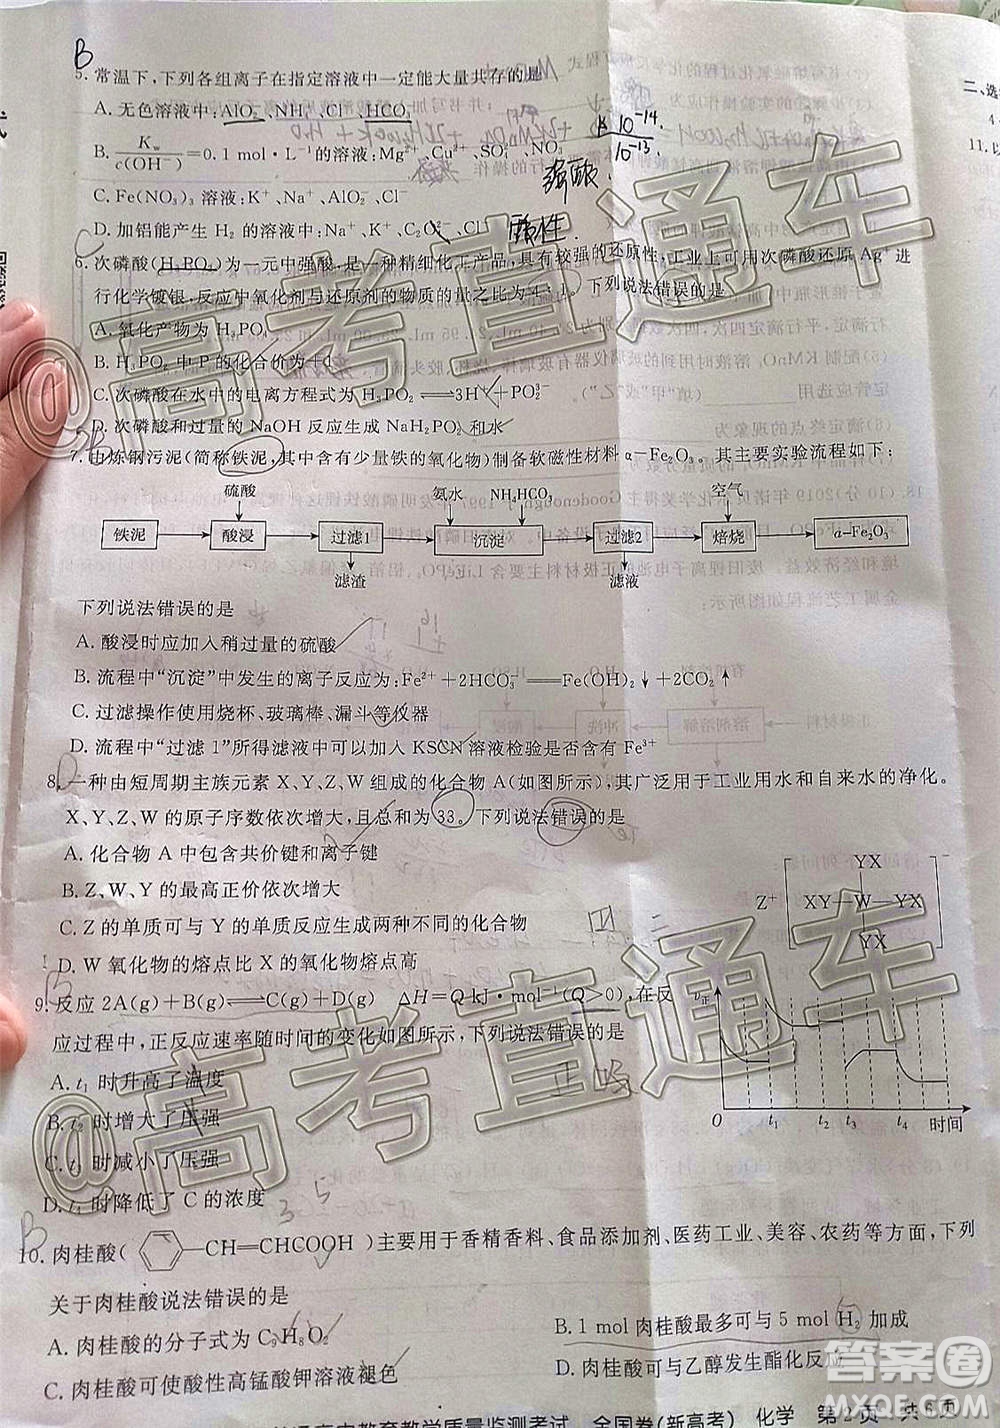 B
5. 常温下,下列各组离子在指定溶液中一定能大量共存的是
A. 无色溶液中:AlO₂⁻、NH₄⁺、Cl⁻、HCO₃⁻
B. Kw/c(OH⁻)=0.1 mol·L⁻¹的溶液:Mg²⁺、Cu²⁺、SO₄²⁻、NO₃⁻
10⁻¹⁴
10⁻¹³
C. Fe(NO₃)₃溶液:K⁺、Na⁺、AlO₂⁻、Cl⁻
D. 加铝能产生 H₂ 的溶液:Na⁺、K⁺、C₂O₄²⁻、Cl⁻
C
6. 次磷酸(H₃PO₂)为一元中强酸,是一种精细化工产品,具有较强的还原性,工业上可用次磷酸还原 Ag⁺进
行化学镀银,反应中氧化剂与还原剂的物质的量之比为4∶1。下列说法错误的是
A. 氧化产物为 H₃PO₄
B. H₃PO₂ 中 P 的化合价为+1
C. 次磷酸在水中的电离方程式为 H₃PO₂⇌3H⁺+PO₂³⁻
D. 次磷酸和过量的 NaOH 反应生成 NaH₂PO₂ 和水
7. 由炼钢污泥(简称铁泥,其中含有少量铁的氧化物)制备软磁性材料 α-Fe₂O₃。其主要实验流程如下:
硫酸 氨水 NH₄HCO₃ 空气
铁泥 酸浸 过滤1 沉淀 过滤2 焙烧 α-Fe₂O₃
滤渣 滤液
下列说法错误的是
A. 酸浸时应加入稍过量的硫酸
B. 流程中“沉淀”中发生的离子反应为:Fe²⁺+2HCO₃⁻══Fe(OH)₂↓+2CO₂↑
C. 过滤操作使用烧杯、玻璃棒、漏斗等仪器
D. 流程中“过滤 1”所得滤液中能用 KSCN 溶液检验是否含有 Fe³⁺
D
8. 一种由短周期主族元素 X、Y、Z、W 组成的化合物 A(如图所示),其广泛用于工业用水和自来水的净化。
X、Y、Z、W 的原子序数依次增大,且总和为 33。下列说法错误的是
A. 化合物 A 中包含共价键和离子键
B. Z、W、Y 的最高正价依次增大
C. Z 的单质可与 Y 的单质反应生成两种不同的化合物
D. W 氧化物的熔点比 X 的氧化物熔点高
YX
Z⁺ XY—W—YX
YX
B
9. 反应 2A(g)+B(g)⇌C(g)+D(g) ΔH=Q kJ·mol⁻¹(Q>0),在反
应过程中,正反应速率随时间的变化如图所示,下列说法错误的是
A. t₁ 时升高了温度
B. t₂ 时增大了压强
C. t₃ 时减小了压强
D. t₄ 时降低了 C 的浓度
v正
O t₁ t₂ t₃ t₄ 时间
B
10. 肉桂酸(—CH═CHCOOH)主要用于香精香料、食品添加剂、医药工业、美容、农药等方面,下列
关于肉桂酸说法错误的是
A. 肉桂酸的分子式为 C₉H₈O₂
B. 1 mol 肉桂酸最多可与 5 mol H₂ 加成
C. 肉桂酸能使酸性高锰酸钾溶液褪色
D. 肉桂酸可与乙醇发生酯化反应
教育教学质量监测考试 全国卷(新高考) 化学 第2页 共6页
@高考直通车
@高考直通车
答案圈